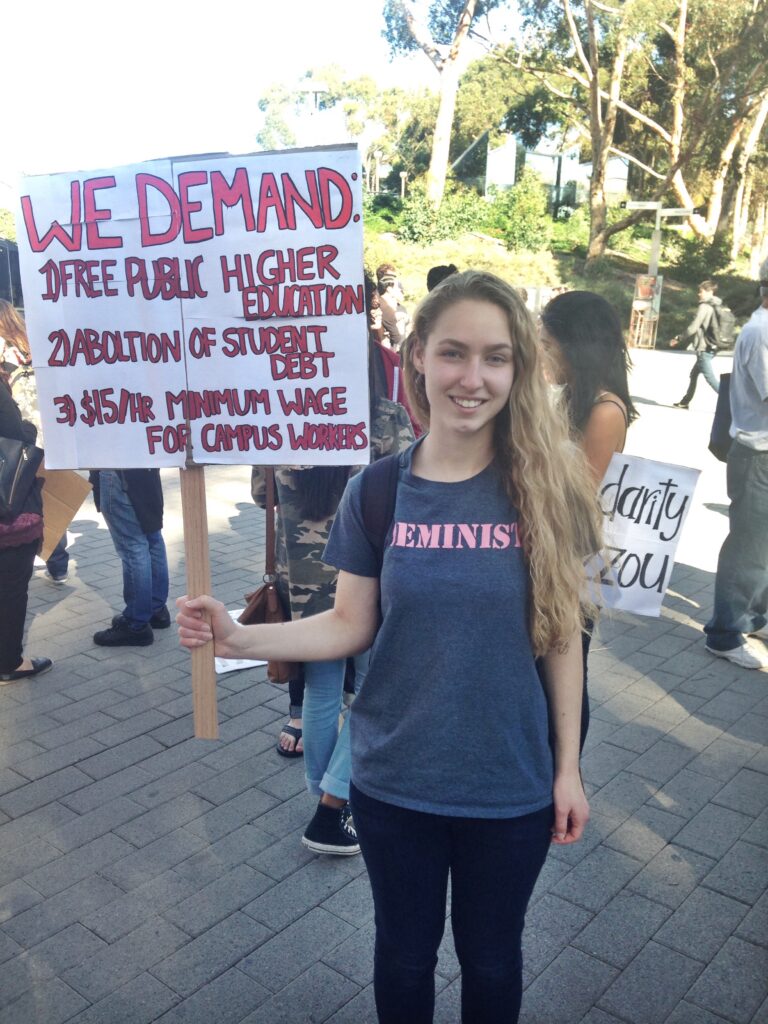 WE DEMAND:
1) FREE PUBLIC HIGHER
EDUCATION
2) ABOLTION OF STUDENT
DEBT
3) $15/HR MINIMUM WAGE
FOR CAMPUS WORKERS
FEMINIST
darity
zou